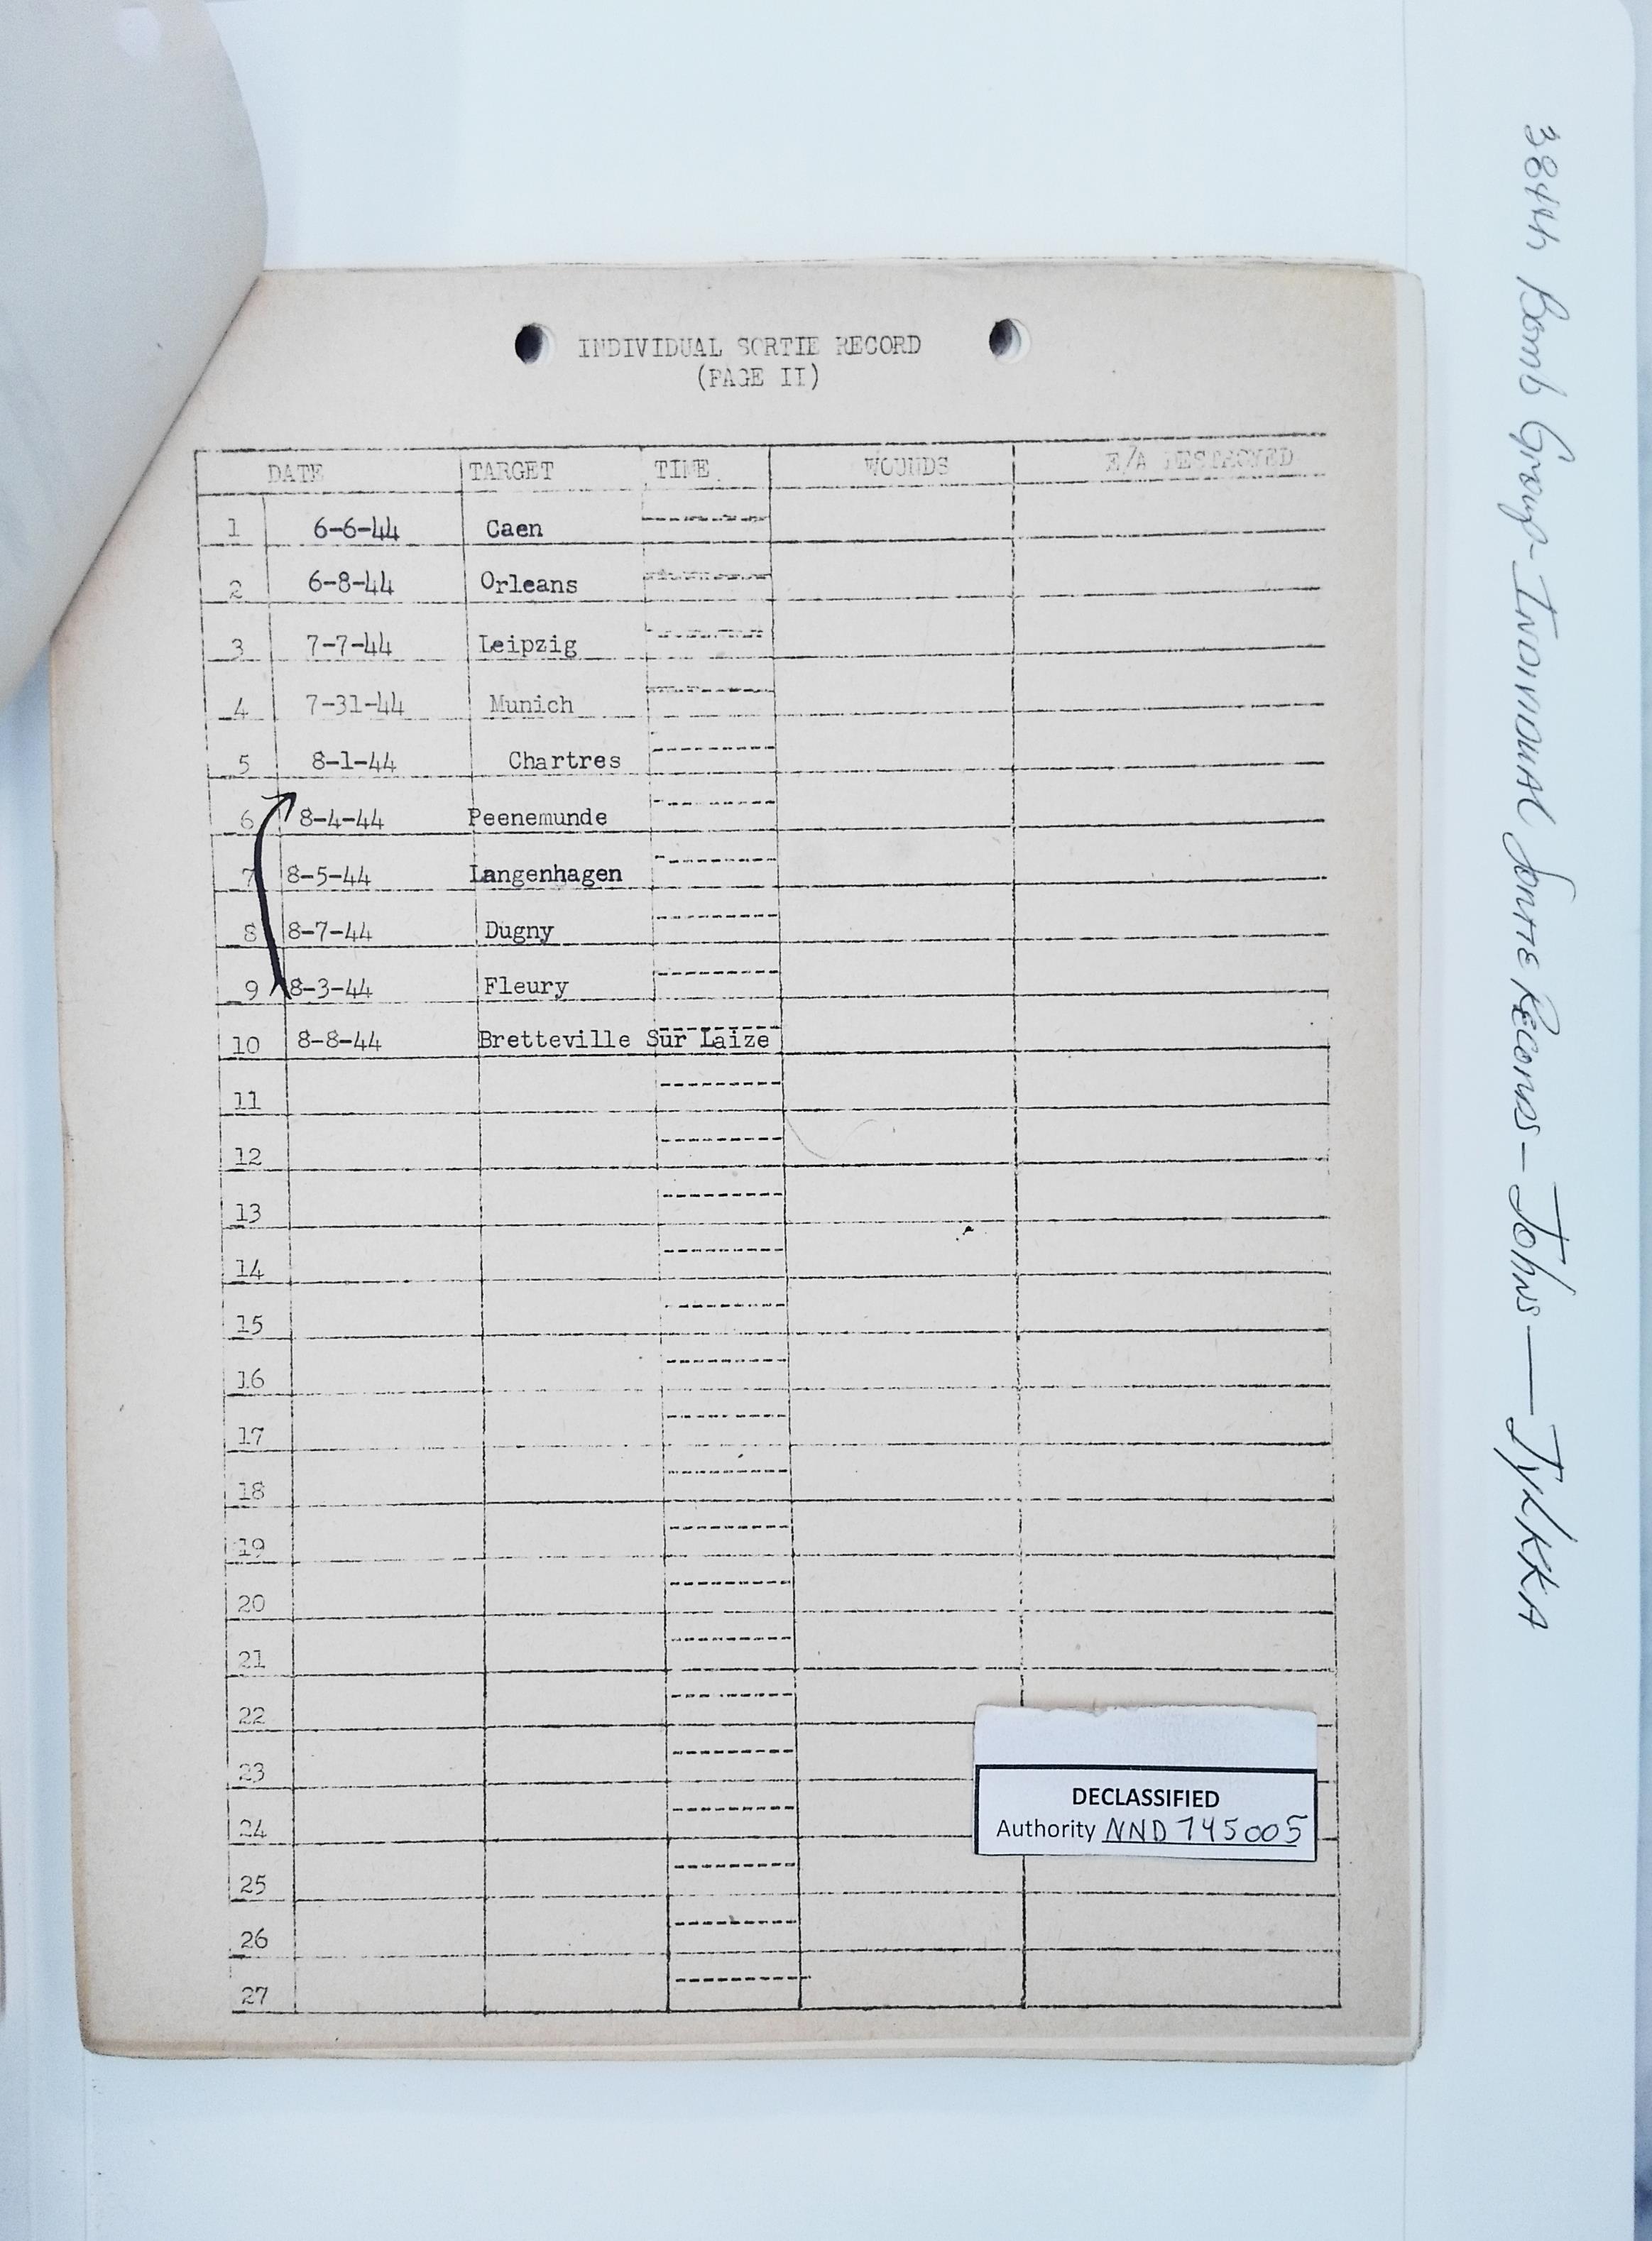 INDIVIDUAL SORTIE RECORD
(PAGE II)
DATE TARGET TIME WOUNDS E/A DESTROYED
1 6-6-44 Caen
2 6-8-44 Orleans
3 7-7-44 Leipzig
4 7-31-44 Munich
5 8-1-44 Chartres
6 8-4-44 Peenemunde
7 8-5-44 Langenhagen
8 8-7-44 Dugny
9 8-3-44 Fleury
10 8-8-44 Bretteville Sur Laize
11
12
13
14
15
16
17
18
19
20
21
22
23
24
25
26
27
DECLASSIFIED
Authority NND 745005
384th Bomb Group - INDIVIDUAL Sortie Records - Johns — Jylkka